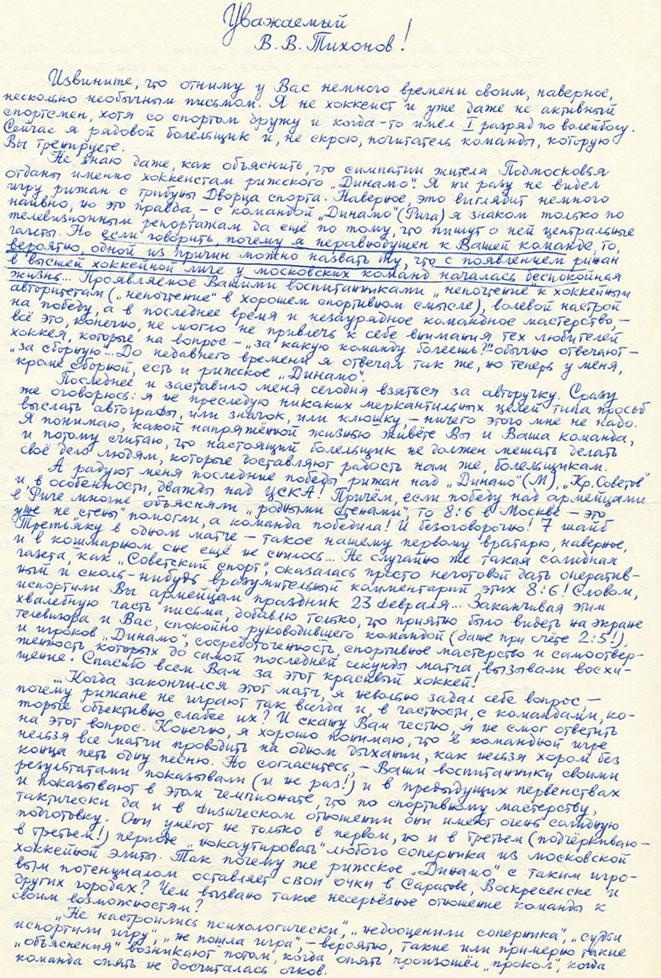 Уважаемый
В. В. Тихонов!
Извините, что отниму у Вас немного времени своим, наверное,
несколько необычным письмом. Я не хоккеист и уже даже не активный
спортсмен, хотя со спортом дружу и когда-то имел I разряд по волейболу.
Сейчас я рядовой болельщик и, не скрою, почитатель команды, которую
Вы тренируете.
Не знаю даже, как объяснить, что симпатии жителя Подмосковья
отданы именно хоккеистам рижского „Динамо". Я ни разу не видел
игру рижан с трибуны Дворца спорта. Наверное, это выглядит немного
наивно, но это правда, – с командой „Динамо" (Рига) я знаком только по
телевизионным репортажам да ещё по тому, что пишут о ней центральные
газеты. Но если говорить, почему я неравнодушен к Вашей команде, то,
вероятно, одной из причин можно назвать ту, что с появлением рижан
в высшей хоккейной лиге у московских команд началась беспокойная
жизнь... Проявляемое Вашими воспитанниками „непочтение" к хоккейным
авторитетам („непочтение" в хорошем спортивном смысле), волевой настрой
на победу, а в последнее время и незаурядное командное мастерство –
всё это, конечно, не могло не привлечь к себе внимания тех любителей
хоккея, которые на вопрос – „за какую команду болеешь?" обычно отвечают –
„за сборную"... До недавнего времени я отвечал так же, но теперь у меня,
кроме сборной, есть и рижское „Динамо".
Последнее и заставило меня сегодня взяться за авторучку. Сразу
же оговорюсь: я не преследую никаких меркантильных целей типа просьб
выслать автографы, или значок, или клюшку – ничего этого мне не надо.
Я понимаю, какой напряжённой жизнью живёте Вы и Ваша команда,
и потому считаю, что настоящий болельщик не должен мешать делать
своё дело людям, которые доставляют радость нам же, болельщикам.
А радуют меня последние победы рижан над „Динамо" (М), „Кр. Советов"
и в особенности, дважды над ЦСКА! Причём, если победу над армейцами
в Риге многие объясняли „родными стенами", то 8:6 в Москве – это
уже не „стены" помогли, а команда победила! И безоговорочно! 7 шайб
Третьяку в одном матче – такое нашему первому вратарю, наверное,
и в кошмарном сне ещё не снилось... Не случайно же такая солидная
газета, как „Советский спорт", оказалась просто неготовой дать оператив-
ный и сколь-нибудь вразумительный комментарий этих 8:6! Словом,
испортили Вы армейцам праздник 23 февраля... Заканчивая этим
хвалебную часть письма, добавлю только, что приятно было видеть на экране
телевизора и Вас, спокойно руководившего командой (даже при счёте 2:5!),
и игроков „Динамо", сосредоточенность, спортивное мастерство и самоотвер-
женность которых до самой последней секунды матча вызывали восхи-
щение! Спасибо всем Вам за этот красивый хоккей!
... Когда закончился этот матч, я невольно задал себе вопрос, –
почему рижане не играют так всегда и, в частности, с командами, ко-
торые объективно слабее их? И скажу Вам честно, я не смог ответить
на этот вопрос. Конечно, я хорошо понимаю, что в командной игре
нельзя все матчи проводить на одном дыхании, как нельзя хором без
конца петь одну песню. Но согласитесь, – Ваши воспитанники своими
результатами показывали (и не раз!) и в предыдущих первенствах
и показывают в этом чемпионате, что по спортивному мастерству,
тактически да и в физическом отношении они имеют очень солидную
подготовку. Они умеют не только в первом, но и в третьем (подчёркиваю –
в третьем!) периоде „нокаутировать" любого соперника из московской
хоккейной элиты. Так почему же рижское „Динамо" с таким игро-
вым потенциалом оставляет свои очки в Саратове, Воскресенске и
других городах? Чем вызвано такое несерьёзное отношение команды к
своим возможностям?
„Не настроились психологически", „недооценили соперника", „судьи
испортили игру", „не пошла игра", – вероятно, такие или примерно такие
„объяснения" возникают потом, когда опять произошёл „прокол", когда
команда опять не досчиталась очков.